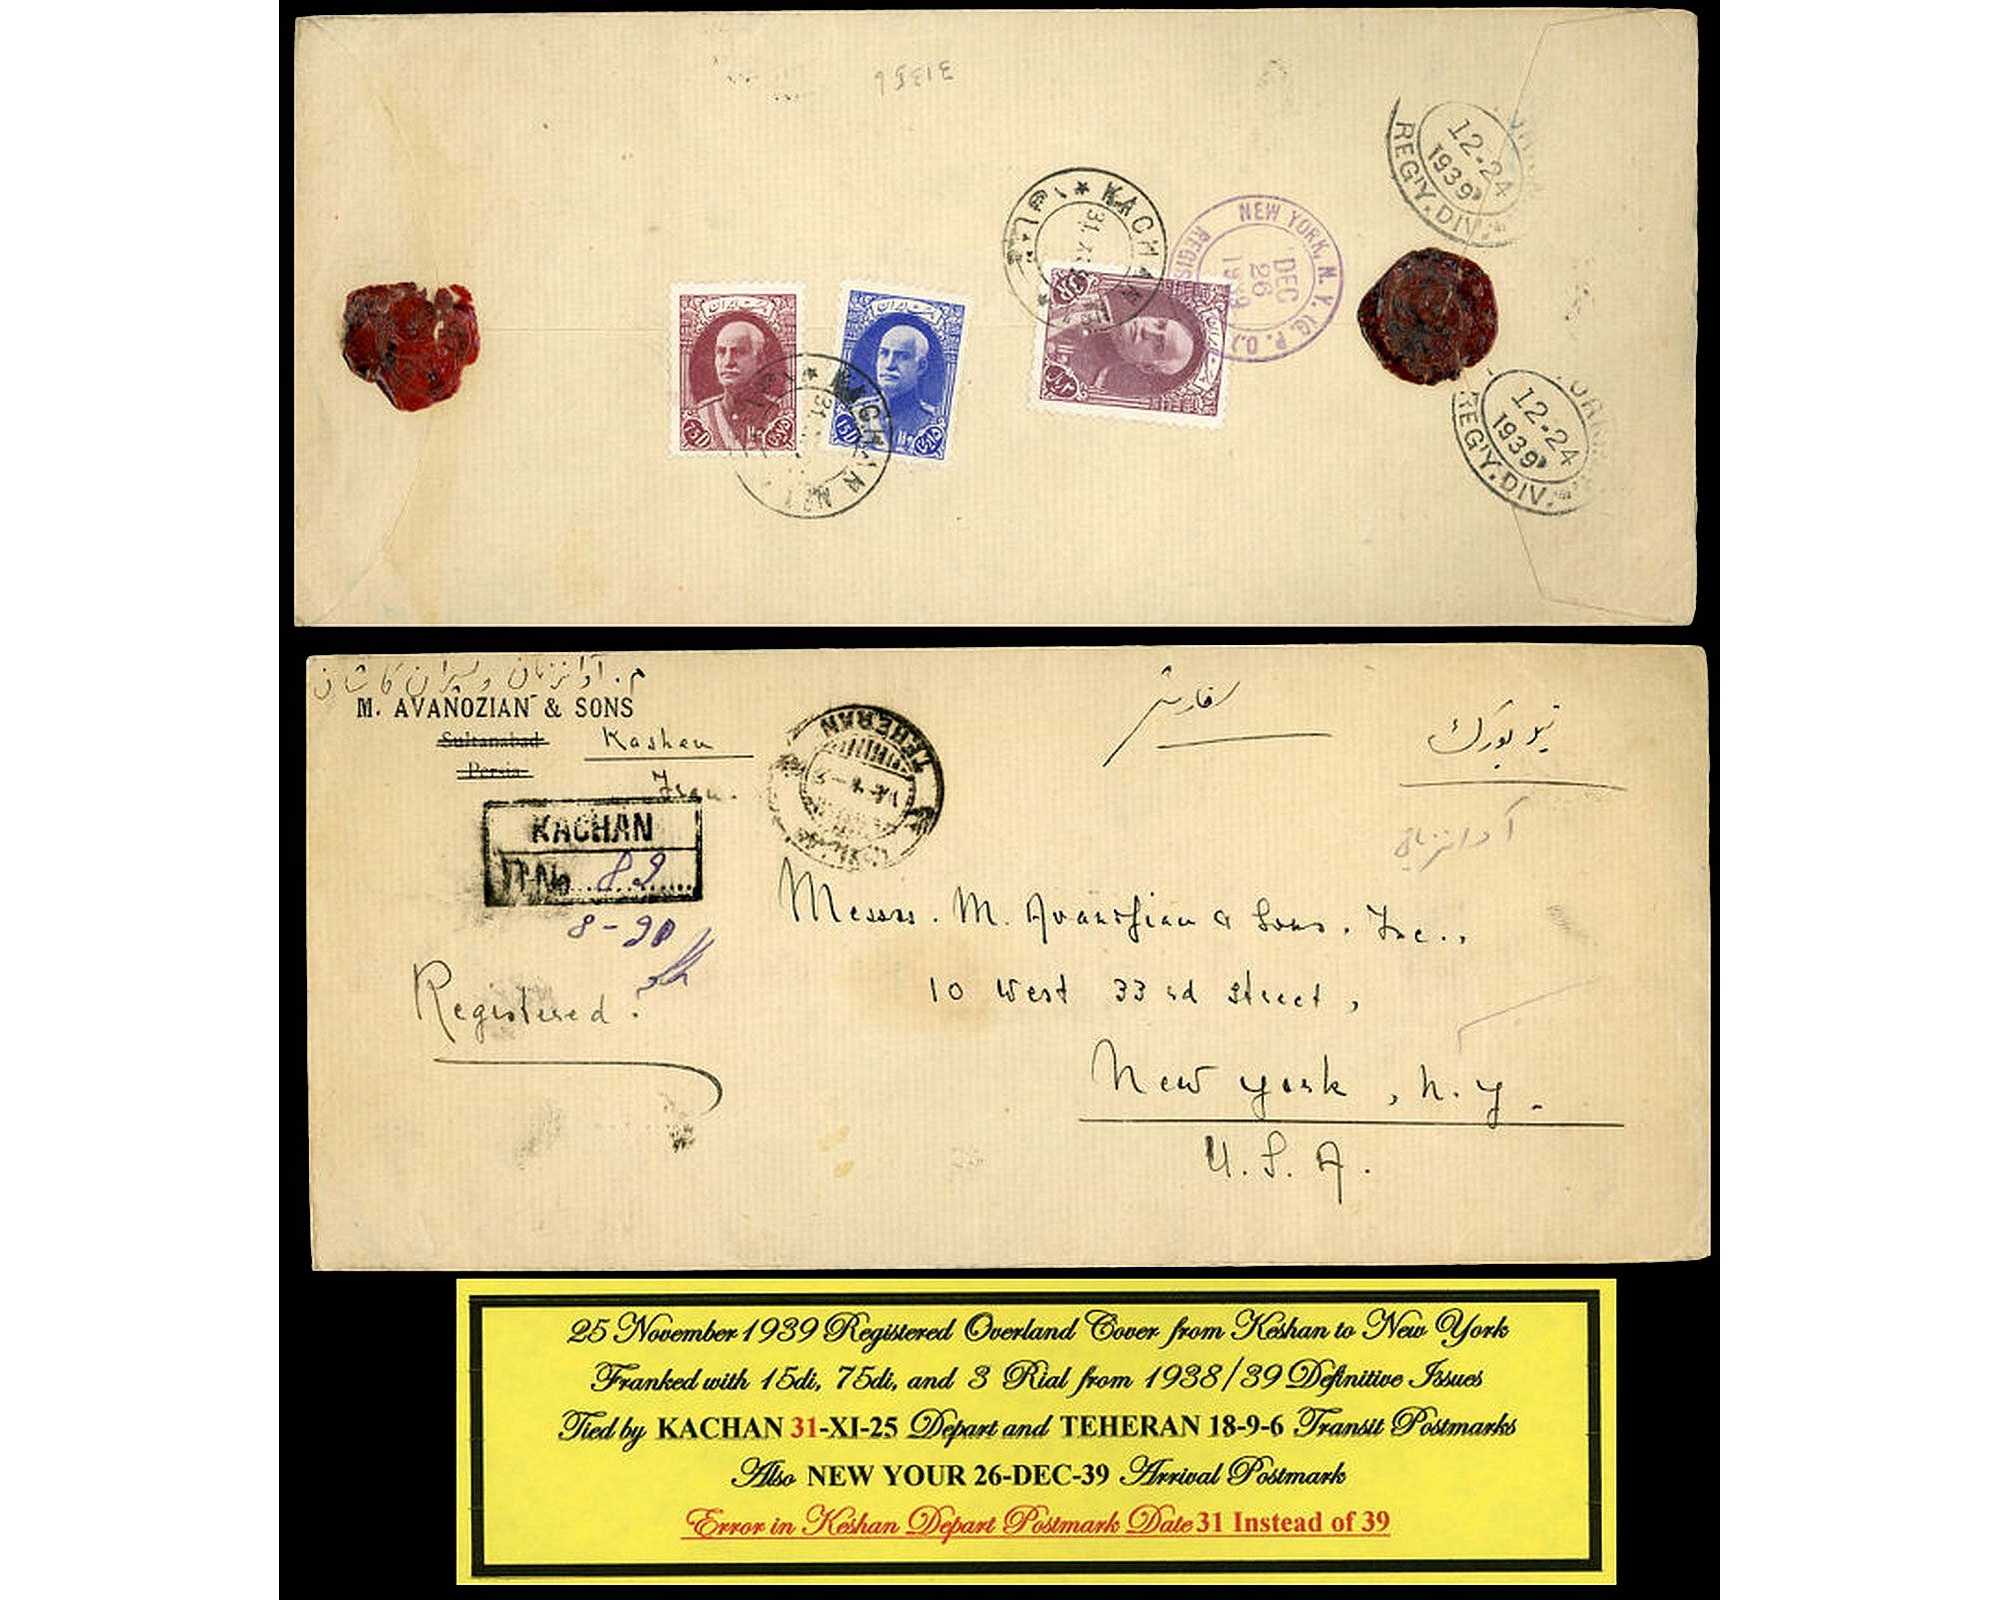 31356
12-24
1939
REG'Y. DIV.
KACHAN
31. X
NEW YORK, N. Y. (G. P. O.)
REGIS
DEC
26
1939
75D
15D
3R
KACHAN No 1
31.
12-24
1939
REG'Y. DIV.
م. آوانزیان و پسران کاشان
M. AVANOZIAN & SONS
Sultanabad Kashan
Persia Iran.
TEHERAN
سفارشی
نیویورک
آوانزیان
KACHAN
No 82
8-90
Registered.
Messrs. M. Avanozian & Sons. Inc.,
10 West 33rd Street,
New York, N.Y.
U.S.A.
25 November 1939 Registered Overland Cover from Keshan to New York
Franked with 15di, 75di, and 3 Rial from 1938/39 Definitive Issues
Tied by KACHAN 31-XI-25 Depart and TEHERAN 18-9-6 Transit Postmarks
Also NEW YOUR 26-DEC-39 Arrival Postmark
Error in Keshan Depart Postmark Date 31 Instead of 39